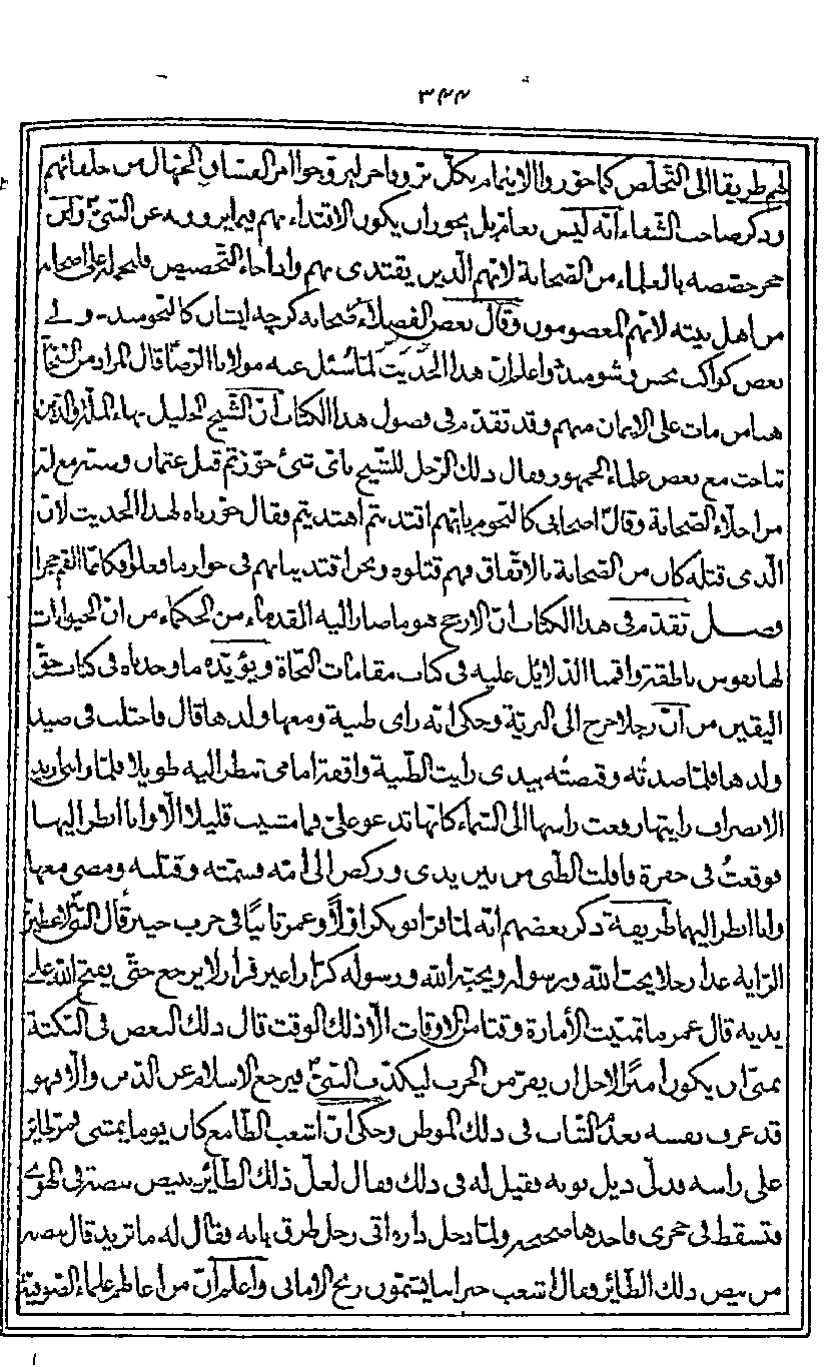 ٣٤٤
لهم طريقا الى التخلص كما جوزوا الايتمام بكل بر وفاجر ليروجوا امر الفساق الجهال من خلفائهم
وذكر صاحب الشفاء انه ليس بعام بل يجوز ان يكون الاقتداء بهم فيما يروونه عن النبي وابن
حجر خصصه بالعلماء من الصحابة لانهم الذين يقتدى بهم واذا جاء التخصيص فليحمله على اصحابه
من اهل بيته لانهم المعصومون وقال بعض الفضلاء صحابه كرچه ايشان كالنجومند ولى
بعض كواكب نحس وشومند واعلم ان هذا الحديث لما سئل عنه مولانا الرضا قال المراد من الصحابة
هنا من مات على الايمان منهم وقد تقدم فى فصول هذا الكتاب ان الشيخ الجليل بهاء الملة والدين
تباحث مع بعض علماء الجمهور وقال ذلك الرجل للشيخ باى شئ جوزتم قتل عثمان وسبه مع انه
من اجلاء الصحابة وقال اصحابى كالنجوم بايهم اقتديتم اهتديتم فقال جوزناه لهذا الحديث لان
الذى قتله كان من الصحابة بالاتفاق فهم قتلوه ونحن اقتدينا بهم فى جواز ما فعلوا فكانما القم حجرا
فصل تقدم فى هذا الكتاب ان الارجح هو ما صار اليه القدماء من الحكماء من ان الحيوانات
لها نفوس ناطقة واقمنا الدلايل عليه فى كتاب مقامات النجاة ويؤيده ما وجدناه فى كتاب حق
اليقين من ان رجلا خرج الى البرية وحكى انه راى ظبية ومعها ولدها قال فاحتلت فى صيد
ولدها فلما صدته وقبضته بيدى رايت الظبية واقفة امامى تنظر اليه طويلا فلما وانى اريد
الانصراف رايتها رفعت راسها الى السماء كانها تدعو على فما مشيت قليلا الا وانا انظر اليها
فوقعت فى حفرة فافلت الظبى من بين يدى وركض الى امه فشمته وقبلته ومضى معها
وانا انظر اليهما طريفة ذكر بعضهم انه لما فر ابو بكر اولا وعمر ثانيا فى حرب خيبر قال النبى لاعطين
الراية غدا رجلا يحب الله ورسوله ويحبه الله ورسوله كرارا غير فرار لا يرجع حتى يفتح الله على
يديه قال عمر ما تمنيت الأمارة وقتا من الاوقات الا ذلك الوقت قال ذلك البعض فى النكتة
تمنى ان يكون اميرا لاجل ان يفر من الحرب ليكذب النبى فيرجع الاسلام عن الناس والا فهو
قد عرف نفسه بعدم الثبات فى ذلك الموطن وحكى ان اشعب الطامع كان يوما يمشى فمر طاير
على راسه فدلى ذيل ثوبه فقيل له فى ذلك فقال لعل ذلك الطائر يبيض بيضة فى الهوى
فتسقط فى حجرى فاخذها صحيحة ولما دخل داره اتى رجل طرق بابه فقال له ما تريد قال بيضه
من بيض ذلك الطائر فقال اشعب جيراننا يشمون ريح الامانى واعلم ان من اعاظم علماء الصوفية